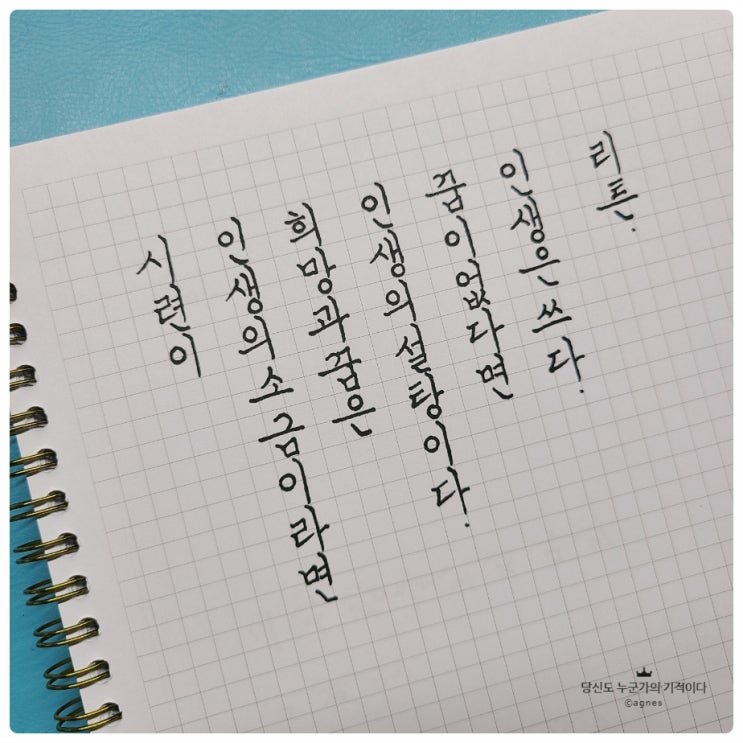 시련이
인생의 소금이라면
희망과 꿈은
인생의 설탕이다.
꿈이 없다면
인생은 쓰다.
리튼.
당신도 누군가의 기적이다
©agnes